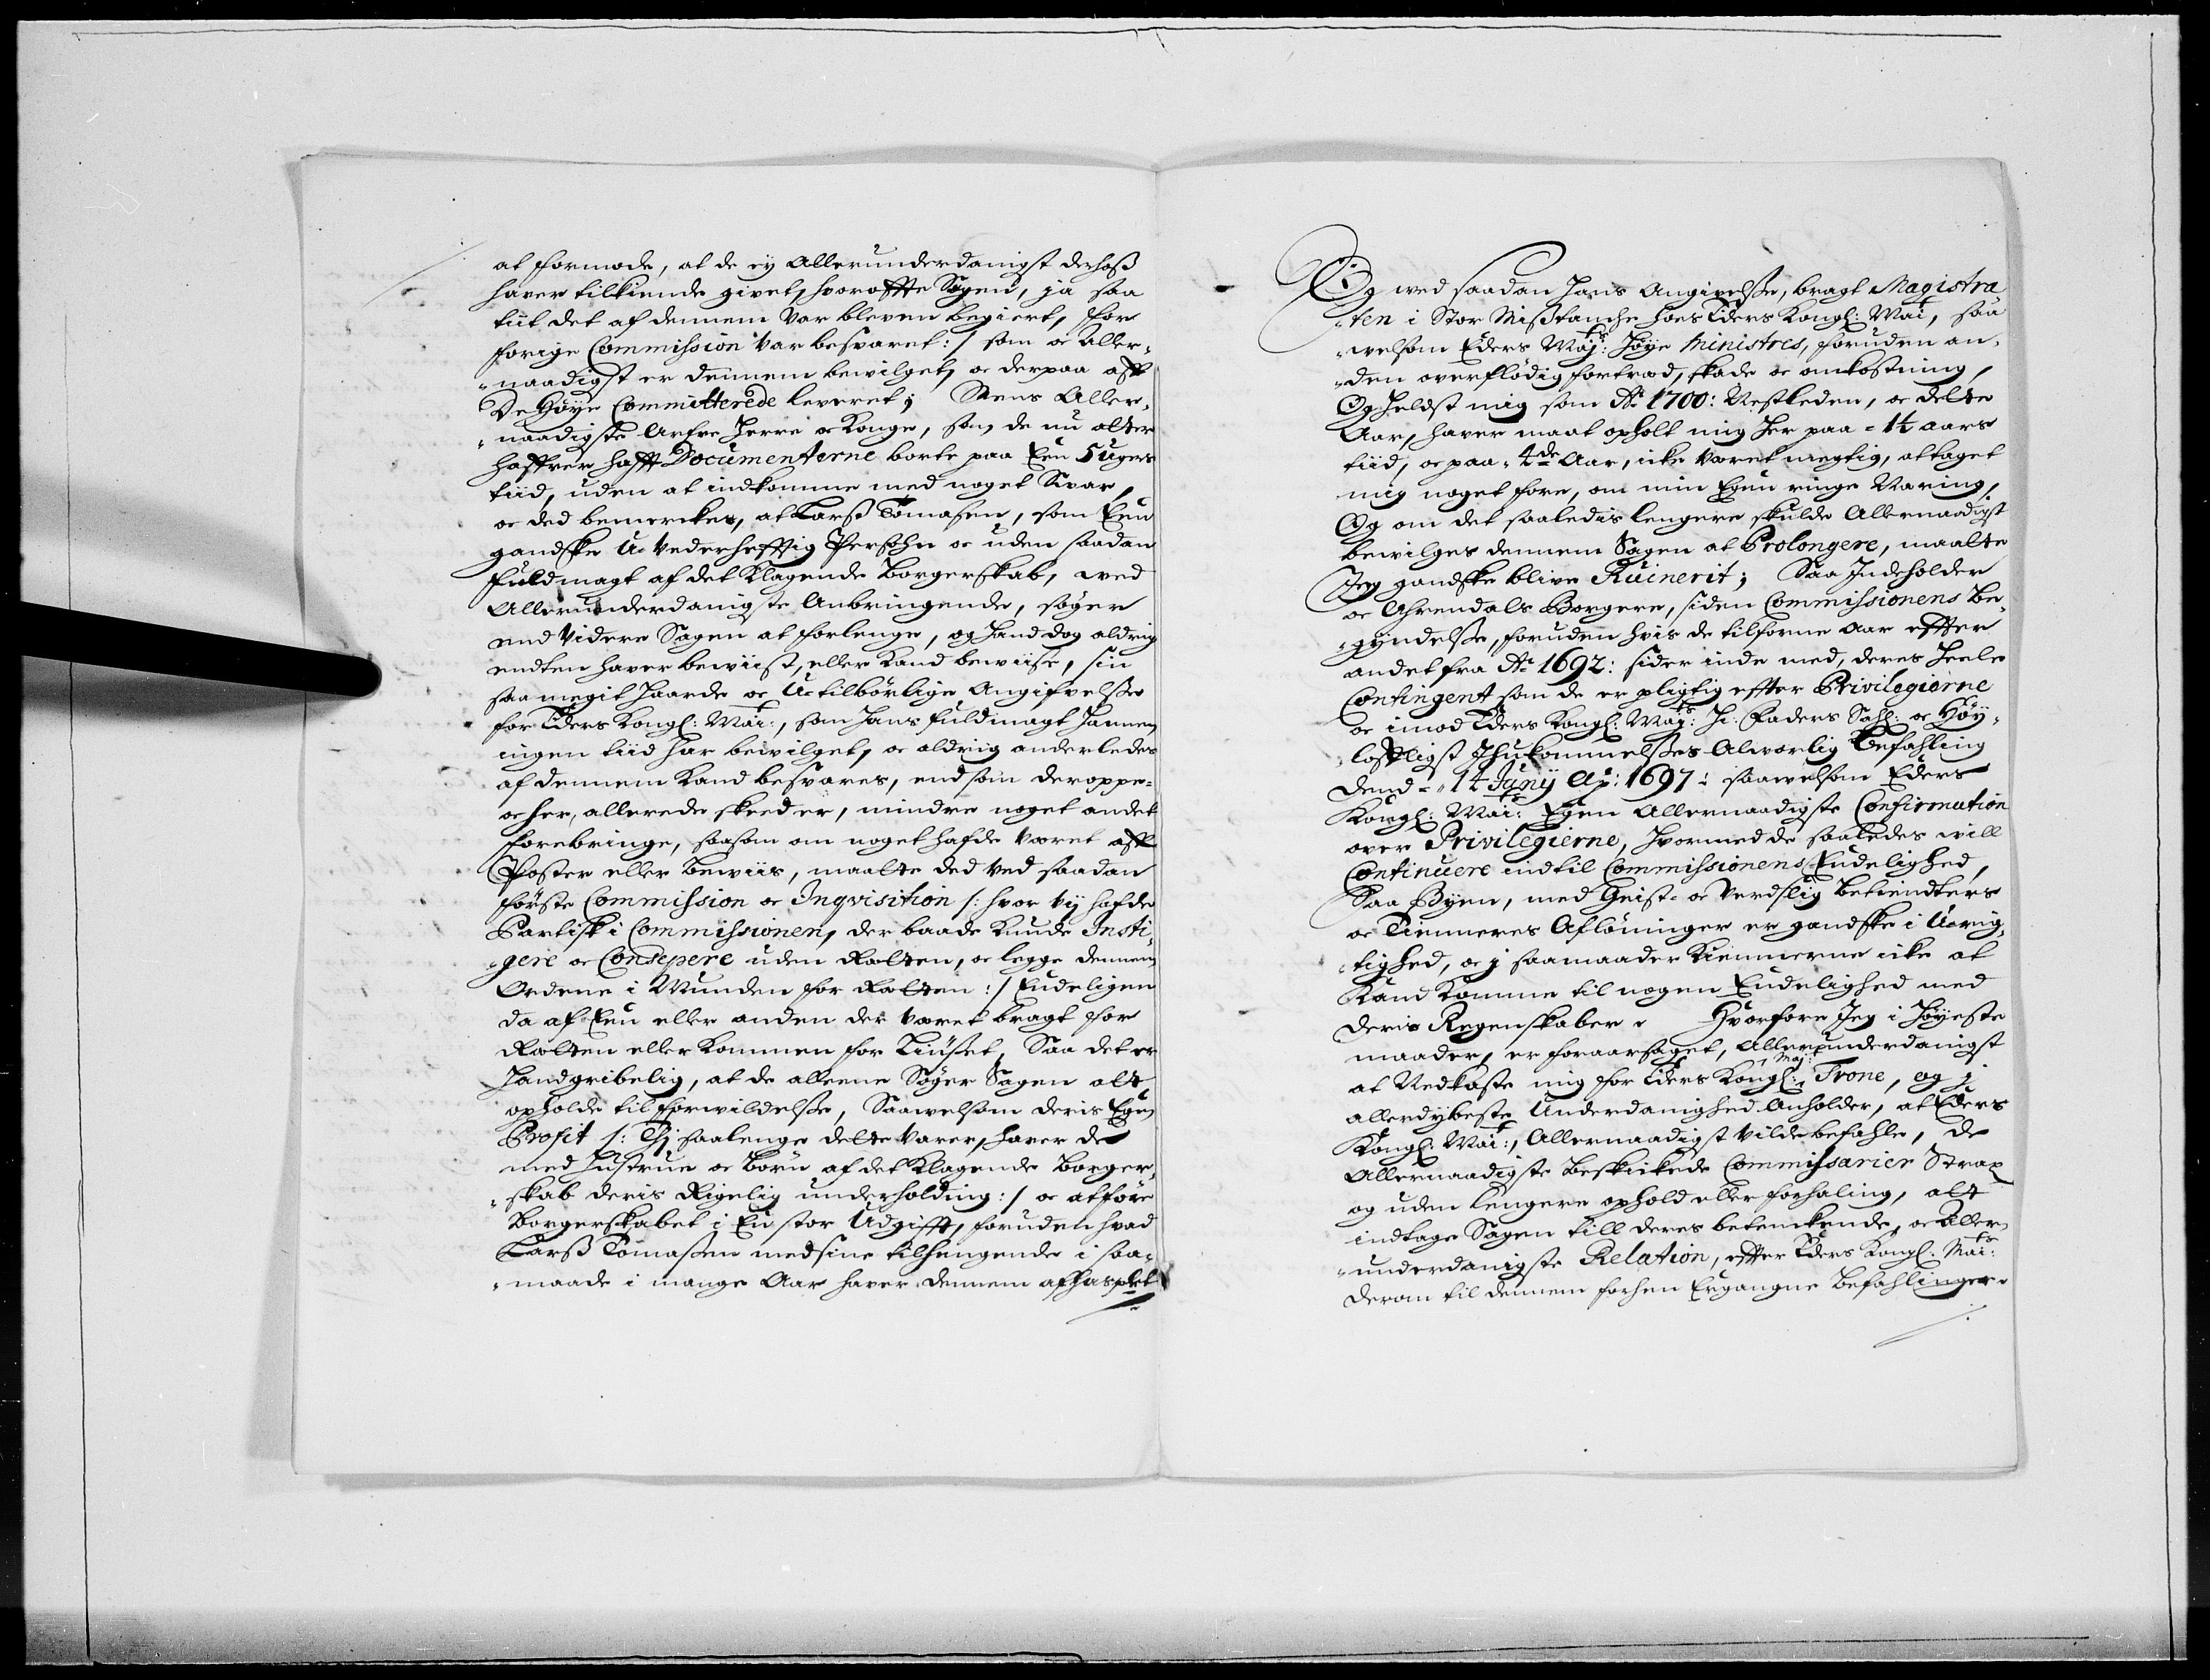 at formode, at de ey Allerunderdanigst derhoß
haver tilkiende givet, hvorofte Sagen, ja saa
tiit det af dennem var bleven begiert, for
forige Commission var besvaret :/ som oc Aller¬
"naadigst er dennem bevilget, oc derpaa aff
De Høye Committerede leveret; Mens Aller¬
"naadigste Arfve Herre oc Konge, som de nu alter
haffver hafft Documenterne borte paa Een 5 ugers
tiid, uden at indkomme med noget Svar,
oc ded bemerckes, at Larß Tomasen, som Een
gandske U-vederhefftig Persohn oc uden saadan
fuldmagt af det klagende Borgerskab, med
Allerunderdanigste Anbringende, søger
end videre Sagen at forlenge, og hand dog aldrig
endten haver beviist, eller kand beviise, sin
saa megit haarde oc U-tilbørlige Angifvelße
for Eders Kongl: Mai:t, som hans fuldmagt hannem
ingen tiid har bevilget, oc aldrig anderledes
af dennem kand besvares, end som deroppe-
oc her, allerede skeed er, mindre noget andet
forebringe, saasom om noget hafde været aff
Poster eller beviis, maatte ded ved saadan
første Commission oc Inqvisition /: hvor vij hafde
Partisk i Commissionen, der baade kunde Insti¬
"gere oc Consepere uden Rætten, oc legge dennem
Ordene i Munden for Rætten :/ Endeligen
da af Een eller anden der været bragt for
Rætten eller kommen for Liuset, Saa det er
handgribelig, at de alleene Søger Sagen alt
opholde til forvildelße, Saavelsom deris Egen
Profit /: Thj saalenge dette varer, haver de
med hustrue oc børn af det klagende borger¬
"skab deris Rigelig underholding :/ oc at føre
borgerskabet i En stor Udgifft, foruden hvad
Larß Tomaßen med sine tilhengende i saa¬
"maade i mange Aar haver dennem afhasplet
Og med saadan hans Angivelße, bragt Magistra
"ten i Stor Mißtanche hoes Eders Kongl: Mai:t, saa
"velsom Eders Maj:ts Høye Ministres, foruden an¬
"den overflødig fortræd, skade oc omkostning,
Og heldst mig som Ao 1700: Nestleden, oc dette
Aar, haver maat opholt mig her paa = 1½ aars
tiid, oc paa "4de Aar, icke været megtig, at taget
mig noget fore, om min Egen ringe Næring,
Og om det saaledis lengere skulde Allernaadigst
bevilges dennem Sagen at Prolongere, maatte
Jeg gandske blive Ruinerit; Saa Indeholder
oc Ahrendals Borgere, siden Commissionens be¬
"gyndelße, foruden hvis de tilforne Aar effter
andet fra Ao 1692: sider inde med, deres heele
Contingent som de er pligtig effter Privilegierne
oc imod Eders Kongl: Maj:ts Hr: Faders Sahl: oc Høy¬
"lofligst Ihukommelßes Alvorlig befahling
dend = "14 Junij Ao: 1697: saavelsom Eders
Kongl: Mai:ts Egen Allernaadigste Confirmation
over Privilegierne, hvormed de saaledes will
Continuere indtil Commissionens Endelighed,
Saa Byen, med Geist- oc verdslig betiendters
oc Tienneres Afløninger er gandske i Urig¬
"tighed, oc j saamaader kiemnerne icke at
kand komme til nogen Endelighed med
deris Regenskaber. Hvorfore Jeg i Høyeste
maader, er foraarsaget, Allerunderdanigst
at Nedkaste mig for Eders Kongl: Maj:ts Trone, og j
allerdybeste Underdanighed Anholder, at Eders
Kongl: Mai:t, Allernaadigst vilde befahle, de
Allernaadigste beskickede Commissarier Strax
og uden lengere ophold eller forhaling, alt
indtage Sagen till deres betenckende, oc Aller
"underdanigste Relation, effter Eders Kongl: Mai:ts
derom til dennem forhen Ergangne befahlinger.